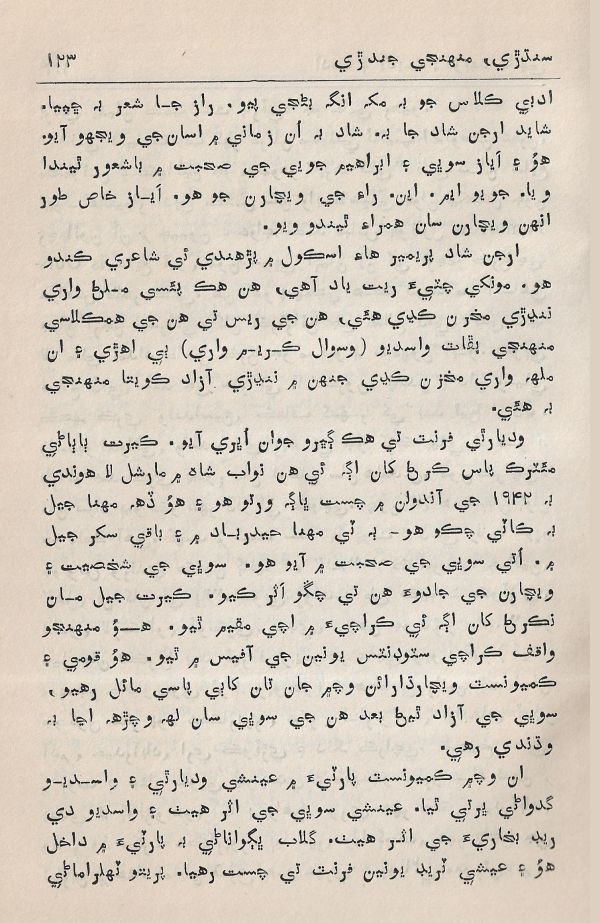 سنڌڙي، منهنجي جندڙي ۱۲۳
ادبي ڪلاس جو به مکہ انگہ بڻجي پيو. راز جـا شعر به ڇپيا.
شايد ارجن شاد جا به. شاد به اُن زماني ۾ اسان‌جي ويجهو آيو.
هوُ ۽ آياز سوڀي ۽ ابراهيم جويي جي صحبت ۾ باشعور ٿيندا
ويا. جويو ايم. اين. راءِ جي ويچارن جو هو. آيـاز خاص طور
انهن ويچارن سان همراءِ ٿيندو ويو.
ارجن شاد پريمير هاءِ اسڪول ۾ پڙهندي ئي شاعري ڪندو
هو. مونکي چٽيءَ ريت ياد آهي، هن هڪ پئسي مـلهہ واري
ننڍڙي مخزن ڪڍي هئي، هن جي ريس تي هن جي همڪلاسي
منهنجي ڀڦاٽ واسديو (وسوال ڪـريـم واري) ٻي اهڙي ۽ ان
ملهہ واري مخزن ڪڍي جنهن ۾ ننڍڙي آزاد ڪويتا منهنجي
به هئي.
وديارٿي فرنٽ تي هڪ ڳيرو جوان اُڀري آيو. ڪيرت ٻاٻاڻي
مئٽرڪ پاس ڪرڻ کان اڳہ ئي هن نواب شاهہ ۾ مارشل لا هوندي
به ۱۹۴۲ جي آندولن ۾ چست ڀاڱہ ورتو هو ۽ هوُ ڏهہ مهنا جيل
به ڪاٽي چڪو هو- به ٽي مهنا حيدربـاد ۾ ۽ باقي سکر جيل
۾. اُتي سوڀي جي صحبت ۾ آيو هو. سوڀي جي شخصيت ۽
ويچارن جي جادوءَ هن تي چڱو اَثر ڪيو. ڪيرت جيل مـان
نڪرڻ کان اڳہ ئي ڪراچيءَ ۾ اچي مقيم ٿيو. هـوُ منهنجو
واقف ڪراچي سٽوڊنٽس يونين جي آفيس ۾ ٿيو. هوُ قومي ۽
ڪميونسٽ ويچارڌارائن وچ۾ جان تان کاٻي پاسي مائل رهيو،
سوڀي جي آزاد ٿيڻ بعد هن جي سوڀي سان لهہ وچڙهہ اڃا به
وڌندي رهي.
ان وچ۾ ڪميونسٽ پارٽيءَ ۾ عينشي وديارٿي ۽ واسـديـو
گدواڻي ڀرتي ٿيا. عينشي سوڀي جي اثر هيٺ ۽ واسديو دي
ريڊ بخاريءَ جي اثـر هيٺ. گلاب ڀڳواناڻي به پارٽيءَ ۾ داخل
هوُ ۽ عيشي ٽريڊ يونين فرنٽ تي چست رهيا. پريتو ٽهلراماڻي